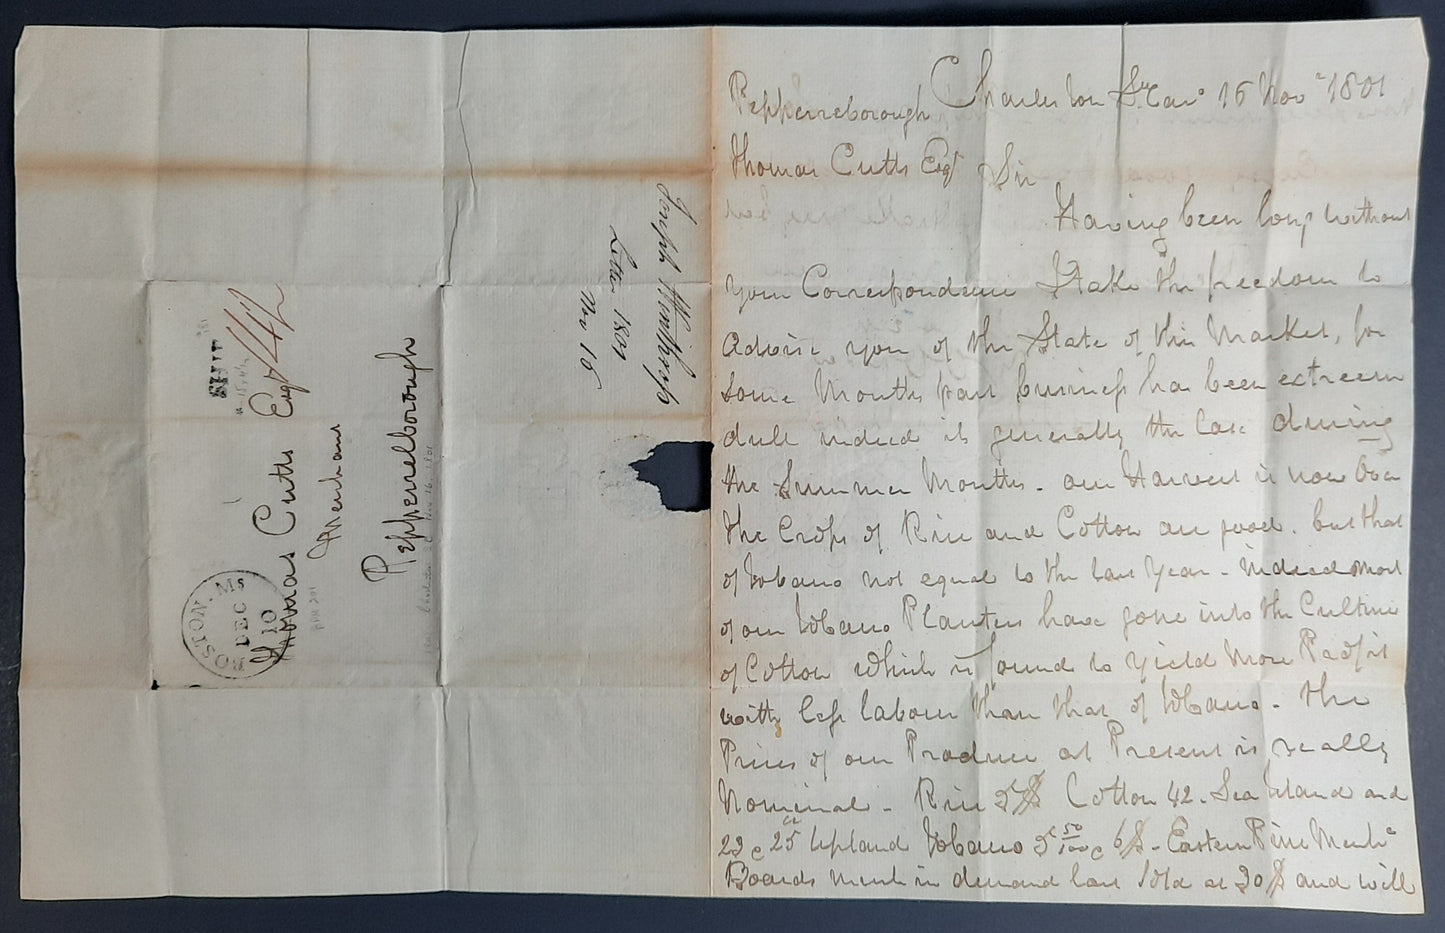 Charleston So Caro 16 Novr 1801
Pepperreborough
Thomas Cutts Esqr Sir
Having been long without
your Correspondence I take the freedom to
advise you of the State of this Market, for
some Months past business has been extreem
dull indeed it generally the Case during
the Summer Months - our Harvest is now over
the Crops of Rice and Cotton are good. but that
of Tobacco not equal to the last Year - indeed most
of our Tobacco Planters have gone into the Culture
of Cotton which is found to yield More Profit
with less labour than that of Tobacco - the
Prices of our Produce at Present is really
Nominal - Rice Cotton 42 - Sea Island and
23 a 25 Upland Tobacco 5 50/100 a 6$ - Eastern Pine Mercht
Boards much in demand last Sold at 20$ and will
Joseph Winthrop
Letter 1801
Nov 16
SHIP
Thomas Cutts Esqr
Merchant
Pepperreborough
BOSTON. Ms
DEC
10